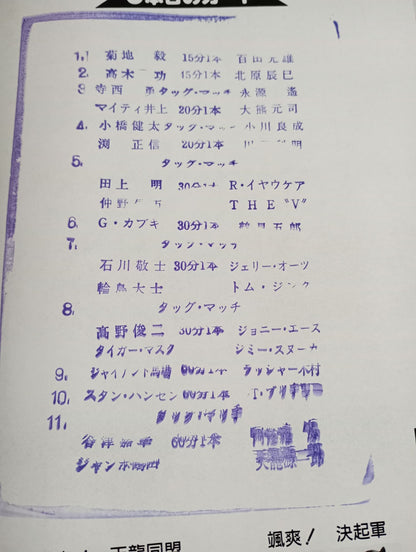 1. 菊地 毅 15分1本 百田光雄
2. 高木 功 15分1本 北原辰巳
3 寺西 勇 タッグ・マッチ 永源 遙
マイティ井上 20分1本 大熊元司
4. 小橋健太 タッグ・マッチ 小川良成
渕 正信 20分1本 川 明
5. タッグ・マッチ
田上 明 30分1本 R・イヤウケア
仲野 30分1本 THE "V"
6. G・カブキ 30分1本 鶴見五郎
7. タッグ・マッチ
石川敬士 30分1本 ジェリー・オーツ
輪島大士 トム・ジンク
8. タッグ・マッチ
高野俊二 30分1本 ジョニー・エース
タイガー・マスク ジミー・スヌーカ
9. ジャイアント馬場 60分1本 ラッシャー木村
10. スタン・ハンセン 60分1本 T・
11. タッグ・マッチ
谷津嘉章 60分1本
ジャンボ鶴田 天龍源一郎
天龍同盟 颯爽! 決起軍